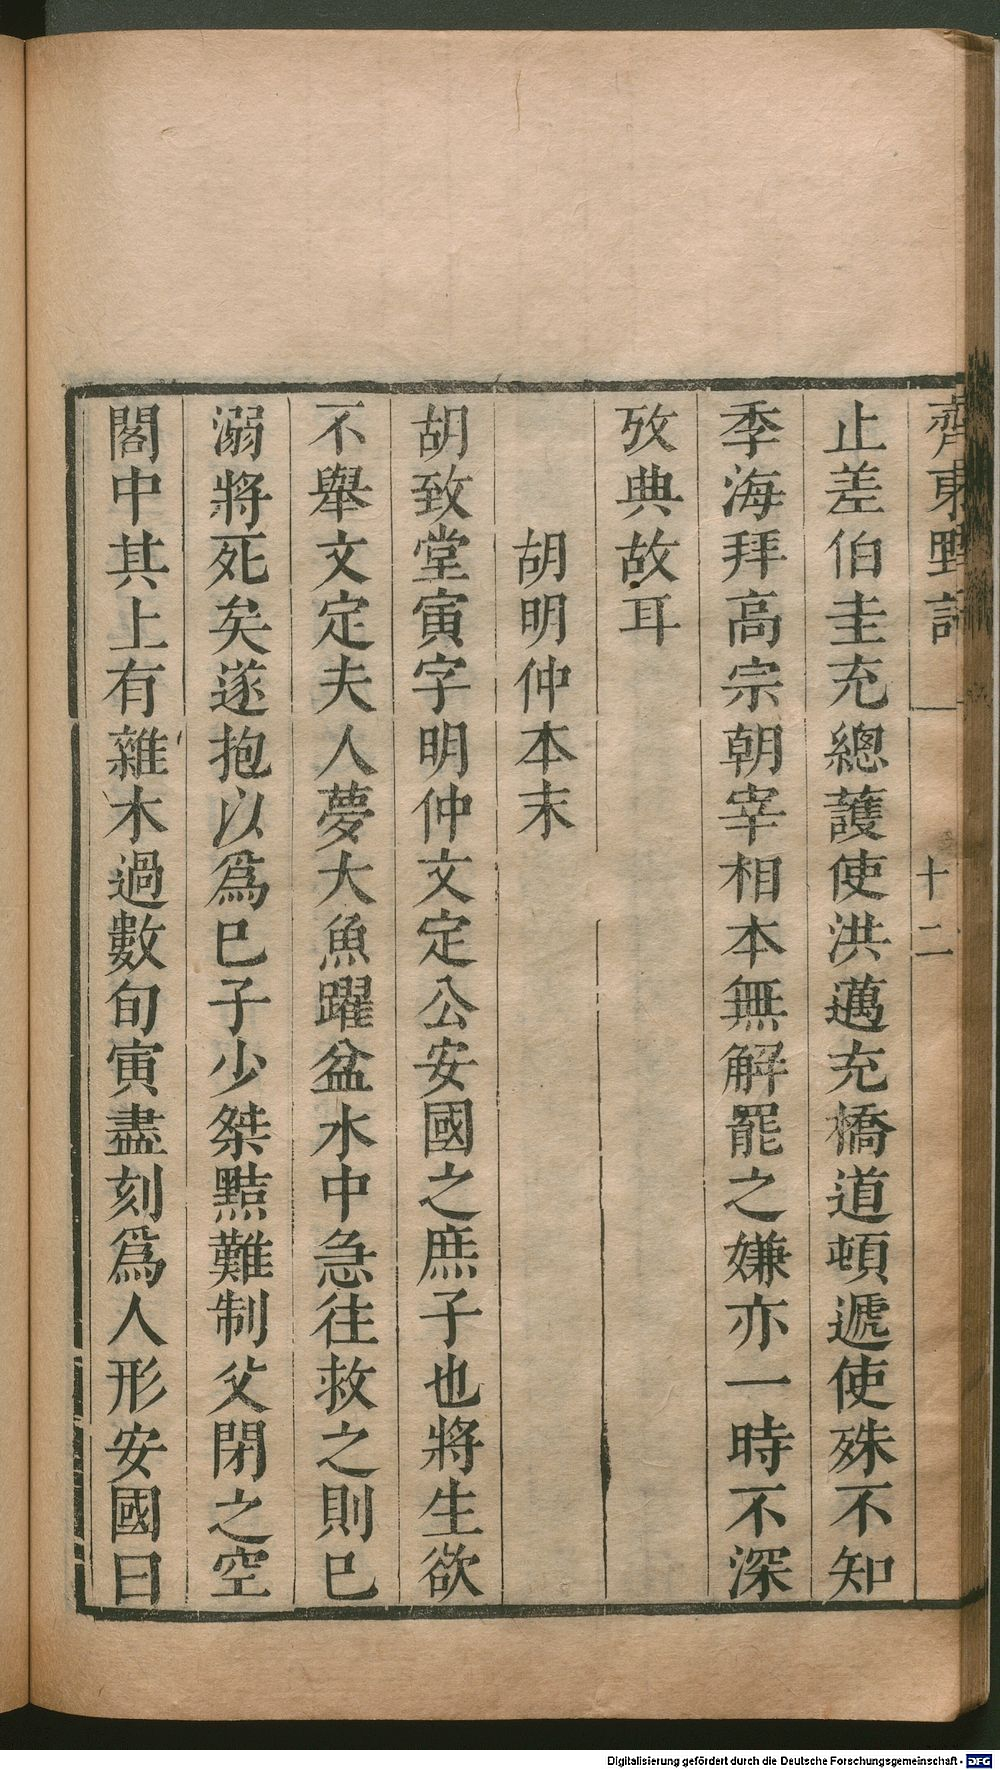 齊東野語
十二
止差伯圭充總護使洪邁充橋道頓遞使殊不知
季海拜高宗朝宰相本無解罷之嫌亦一時不深
攷典故耳
胡明仲本末
胡致堂寅字明仲文定公安國之庶子也將生欲
不舉文定夫人夢大魚躍盆水中急往救之則已
溺將死矣遂抱以爲已子少桀黠難制父閉之空
閣中其上有雜木過數旬寅盡刻爲人形安國曰
Digitalisierung gefördert durch die Deutsche Forschungsgemeinschaft - DFG